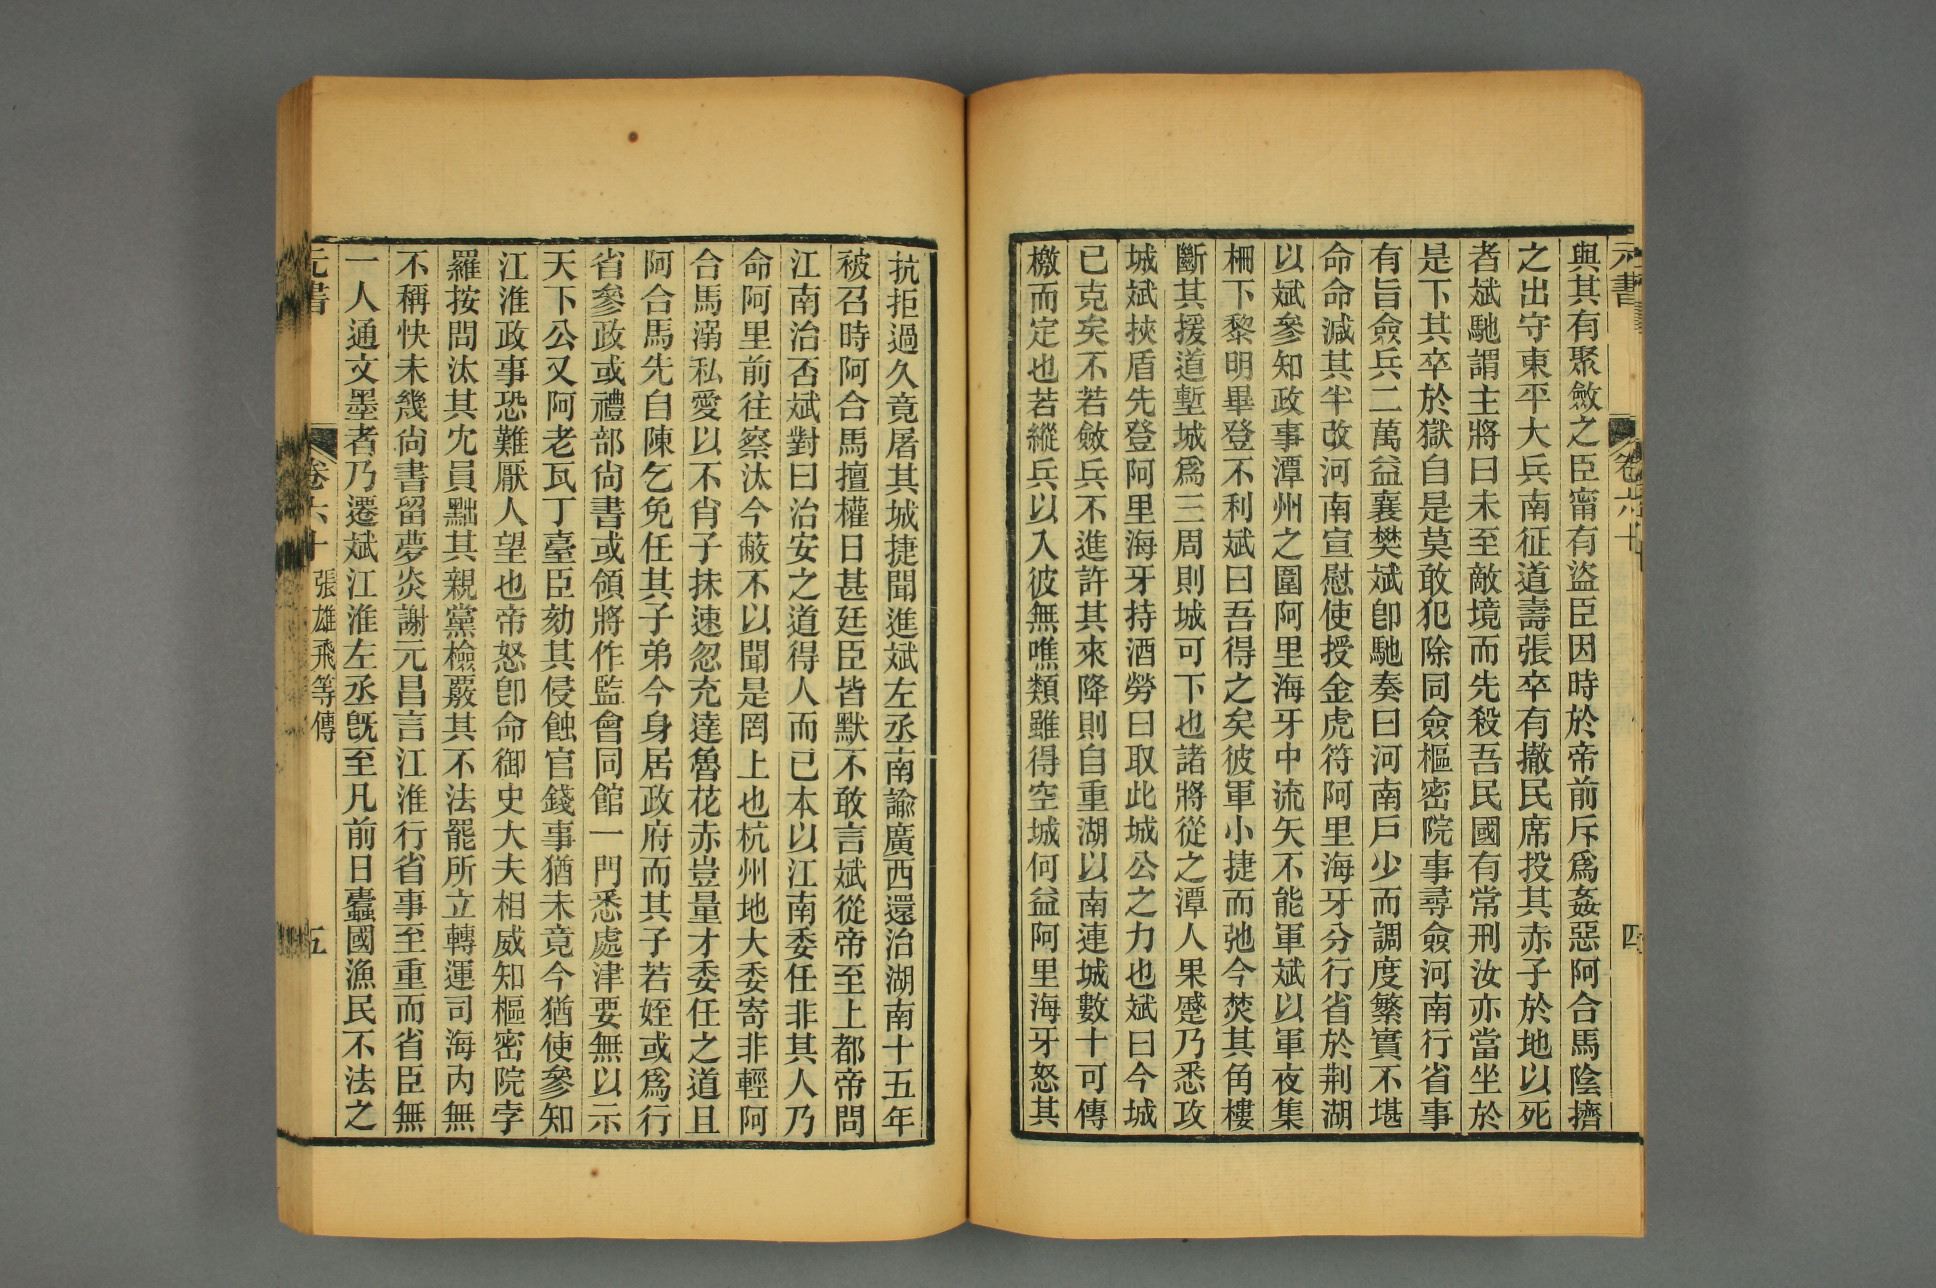 元書
卷六十
四
與其有聚斂之臣甯有盜臣因時於帝前斥爲姦惡阿合馬陰擠
之出守東平大兵南征道壽張卒有撤民席投其赤子於地以死
者斌馳謂主將曰未至敵境而先殺吾民國有常刑汝亦當坐於
是下其卒於獄自是莫敢犯除同僉樞密院事尋僉河南行省事
有旨僉兵二萬益襄樊斌卽馳奏曰河南戶少而調度繁實不堪
命命減其半改河南宣慰使授金虎符阿里海牙分行省於荆湖
以斌參知政事潭州之圍阿里海牙中流矢不能軍斌以軍夜集
柵下黎明畢登不利斌曰吾得之矣彼軍小捷而弛今焚其角樓
斷其援道塹城爲三周則城可下也諸將從之潭人果蹙乃悉攻
城斌挾盾先登阿里海牙持酒勞曰取此城公之力也斌曰今城
已克矣不若斂兵不進許其來降則自重湖以南連城數十可傳
檄而定也若縱兵以入彼無噍類雖得空城何益阿里海牙怒其
抗拒過久竟屠其城捷聞進斌左丞南諭廣西還治湖南十五年
被召時阿合馬擅權日甚廷臣皆默不敢言斌從帝至上都帝問
江南治否斌對曰治安之道得人而已本以江南委任非其人乃
命阿里前往察汰今蔽不以聞是罔上也杭州地大委寄非輕阿
合馬溺私愛以不肖子抹速忽充達魯花赤豈量才委任之道且
阿合馬先自陳乞免任其子弟今身居政府而其子若姪或爲行
省參政或禮部尙書或領將作監會同館一門悉處津要無以示
天下公又阿老瓦丁臺臣劾其侵蝕官錢事猶未竟今猶使參知
江淮政事恐難厭人望也帝怒卽命御史大夫相威知樞密院孛
羅按問汰其冗員黜其親黨檢覈其不法罷所立轉運司海內無
不稱快未幾尙書留夢炎謝元昌言江淮行省事至重而省臣無
一人通文墨者乃遷斌江淮左丞旣至凡前日蠹國漁民不法之
元書
卷六十
張雄飛等傳
五